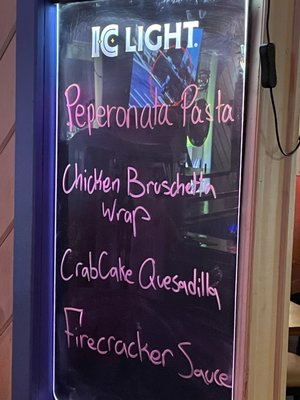 IC LIGHT.
Peperonata Pasta
Chicken Bruschetta
Wrap
CrabCake Quesadilla
Firecracker Sauce